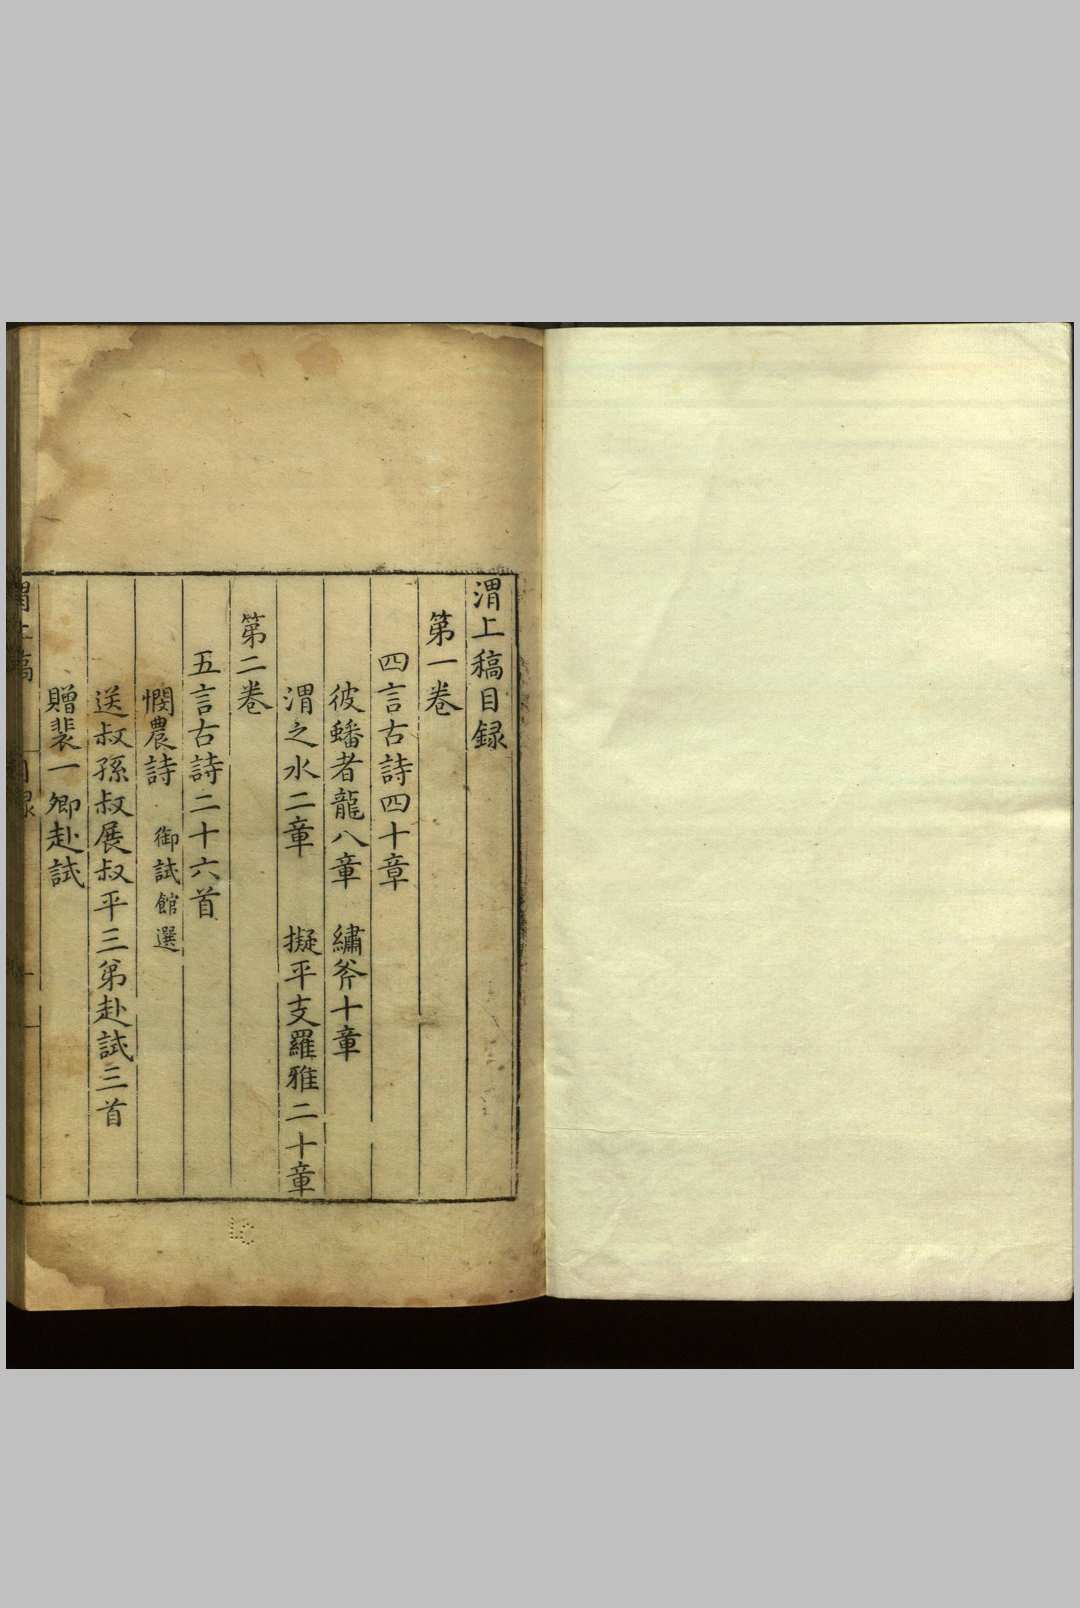 渭上稿目録
第一卷
四言古詩四十章
彼蟠者龍八章　繡斧十章
渭之水二章　擬平支羅雅二十章
第二卷
五言古詩二十六首
憫農詩　御試館選
送叔孫叔展叔平三弟赴試三首
贈裴一卿赴試
渭上稿　目録